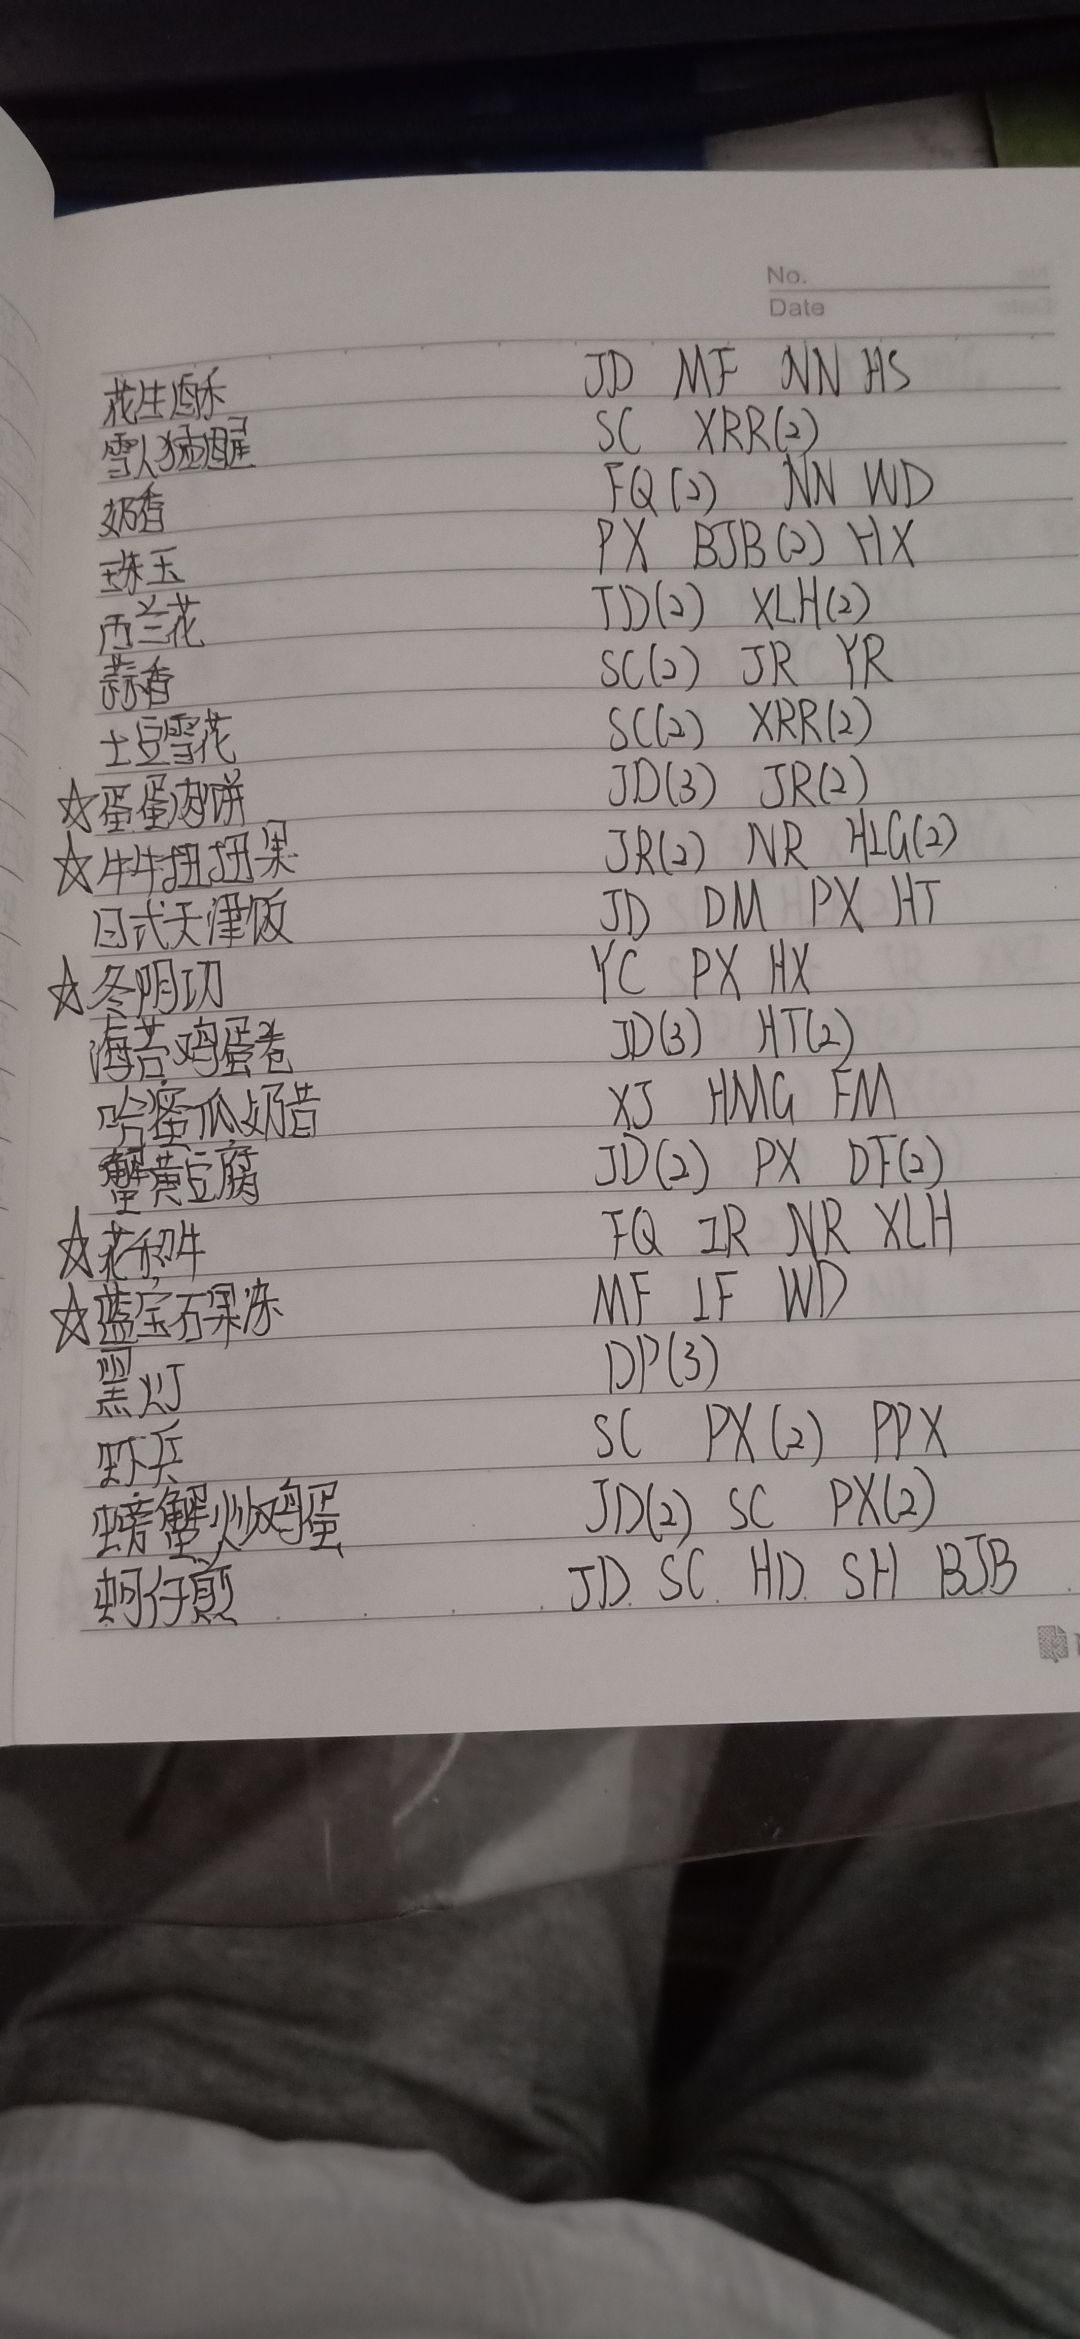 No.
Date
花生酥 JD MF NN HS
雪人猛醒 SC XRR(2)
奶香 FQ(2) NN WD
珠玉 PX BJB(2) HX
西兰花 TD(2) XLH(2)
蒜香 SC(2) JR YR
土豆雪花 SC(2) XRR(2)
☆蛋蛋肉饼 JD(3) JR(2)
☆牛牛扭扭果 JR(2) NR HLG(2)
日式天津饭 JD DM PX HT
☆冬阴功 YC PX HX
海苔鸡蛋卷 JD(3) HT(2)
哈蜜瓜奶昔 XJ HMG FM
蟹黄豆腐 JD(2) PX DF(2)
☆花和牛 FQ IR NR XLH
☆蓝宝石果冻 MF IF WD
黑灯 DP(3)
虾兵 SC PX(2) PPX
螃蟹炒鸡蛋 JD(2) SC PX(2)
蚵仔煎 JD SC HD SH BJB